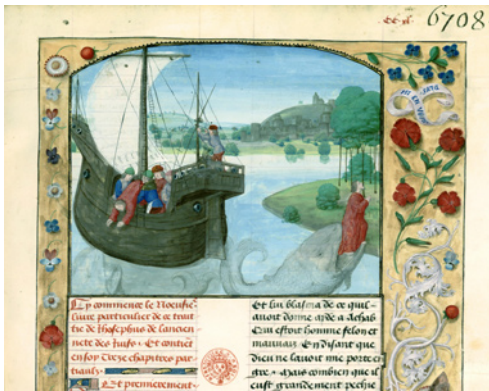 6708
Cy commence le Noeufie
liure particulier de ce trait
tie de Josephus de lancien
nete des juifs. Et contiet
en soy Treze chapitres par
tiaulx.
Et premierement
Et lui blasma de ce quil
auoit donne ayde a Achab
Qui estoit homme felon et
mauuais En disant que
dieu ne lauoit mie porte en
gre. Mais combien que il
eust grandement pechie